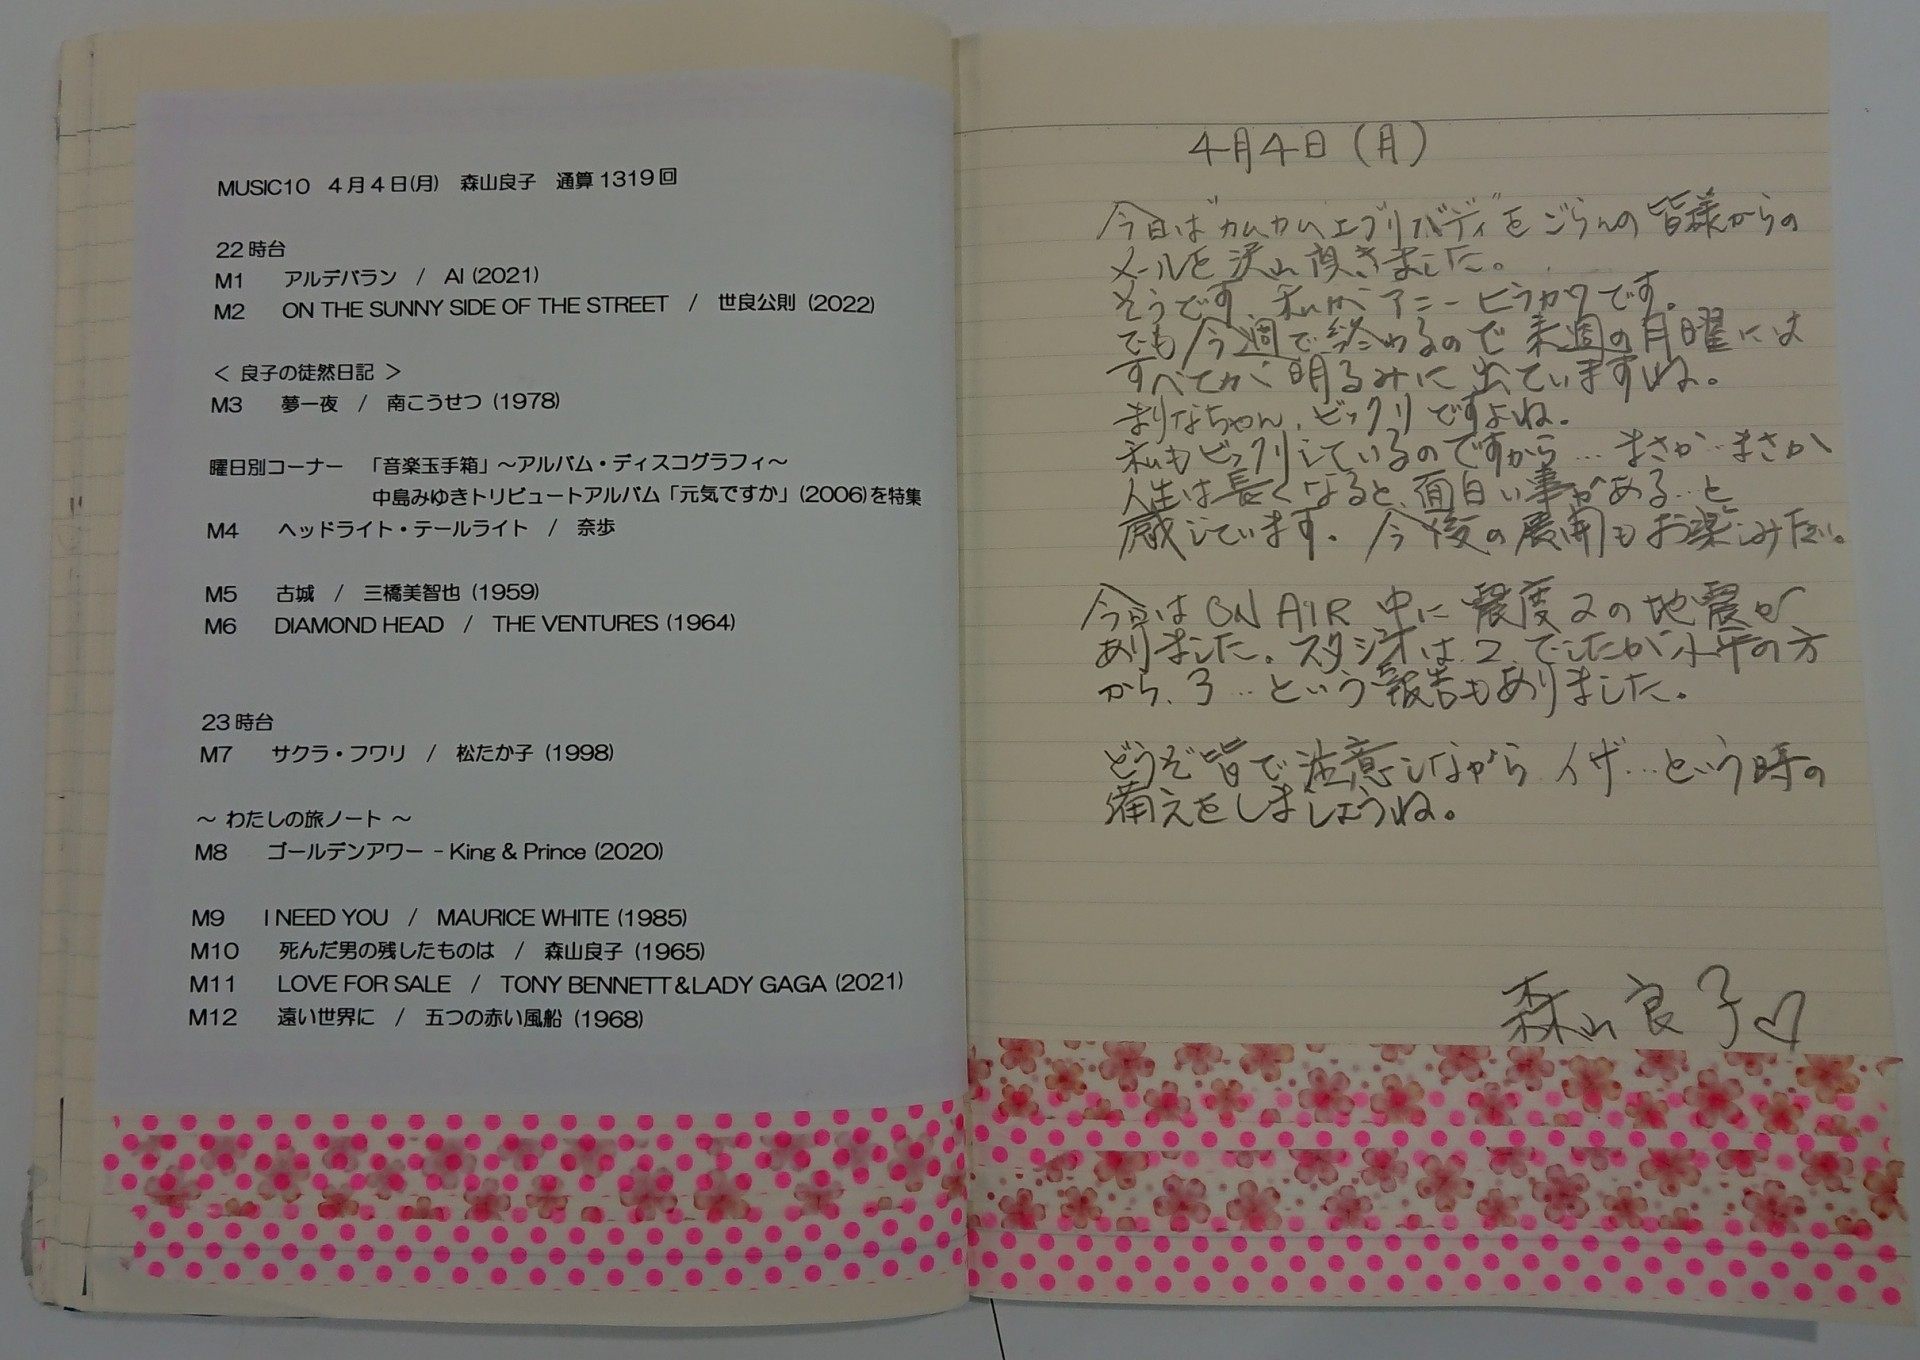 MUSIC10　4月4日(月)　森山良子　通算1319回
22時台
M1　アルデバラン　/　AI (2021)
M2　ON THE SUNNY SIDE OF THE STREET　/　世良公則 (2022)
＜ 良子の徒然日記 ＞
M3　夢一夜　/　南こうせつ (1978)
曜日別コーナー　「音楽玉手箱」～アルバム・ディスコグラフィ～
中島みゆきトリビュートアルバム「元気ですか」(2006)を特集
M4　ヘッドライト・テールライト　/　奈歩
M5　古城　/　三橋美智也 (1959)
M6　DIAMOND HEAD　/　THE VENTURES (1964)
23時台
M7　サクラ・フワリ　/　松たか子 (1998)
～ わたしの旅ノート ～
M8　ゴールデンアワー － King & Prince (2020)
M9　I NEED YOU　/　MAURICE WHITE (1985)
M10　死んだ男の残したものは　/　森山良子 (1965)
M11　LOVE FOR SALE　/　TONY BENNETT&LADY GAGA (2021)
M12　遠い世界に　/　五つの赤い風船 (1968)
4月4日(月)
今日は"カムカムエブリバディ"をごらんの皆様からの
メールを沢山頂きました。
そうです、私が アニー ヒラカワです。
でも今週で終わるので来週の月曜には
すべてが明るみに出ていますね。
まりなちゃん、ビックリですよね。
私もビックリしているのですから… まさか…まさか
人生は長くなると、面白い事がある…と
感じています。今後の展開もお楽しみに。
今日は ON AIR 中に 震度2の地震が
ありました。スタジオは2、でしたが の方
から、3…という報告もありました。
どうぞ皆で注意しながら イザ…という時の
備えをしましょうね。
森山良子♡